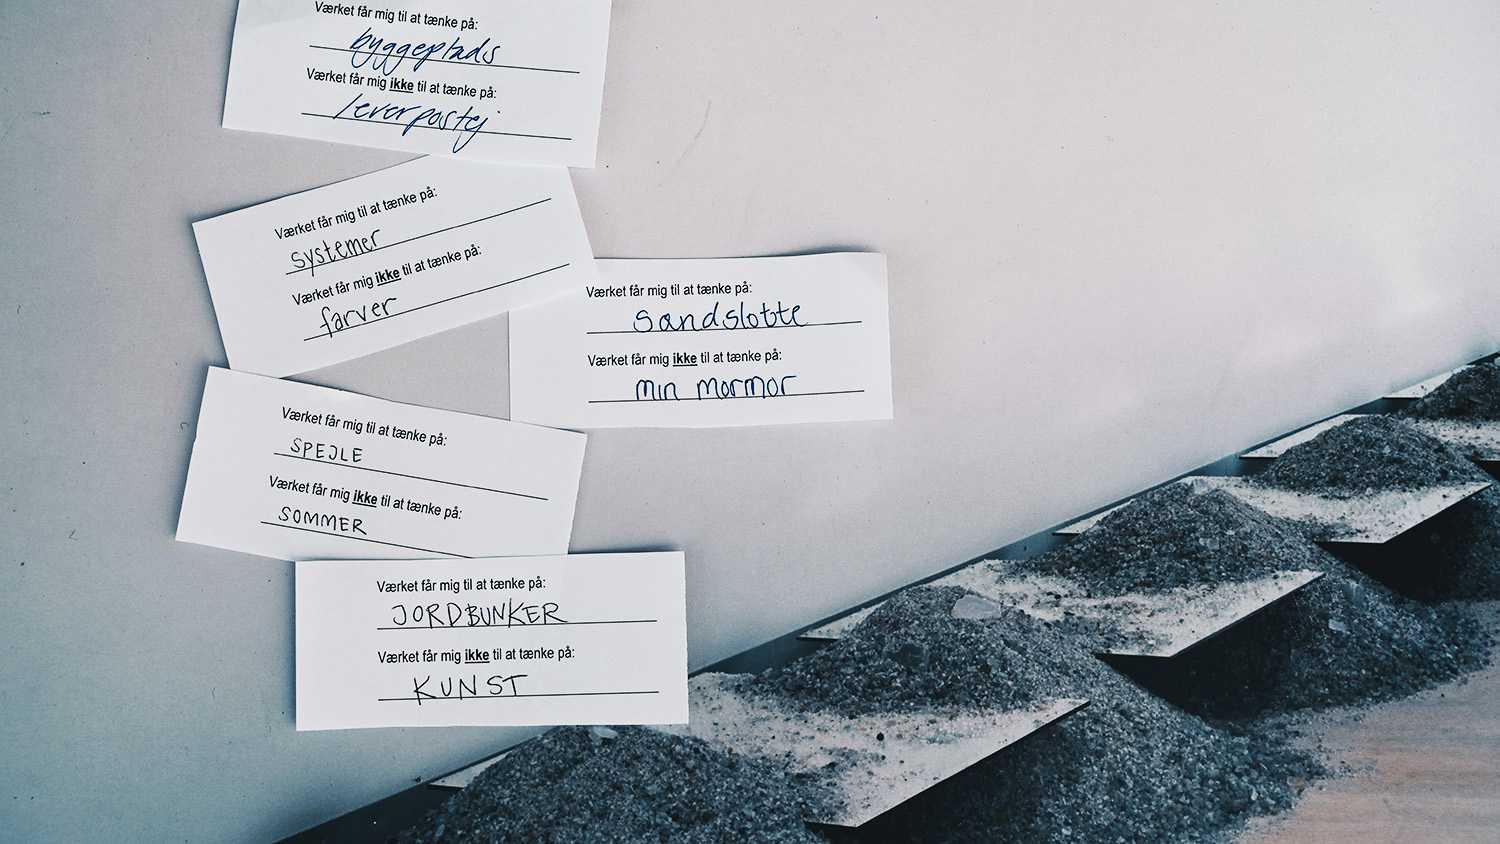 Værket får mig til at tænke på:
byggeplads
Værket får mig ikke til at tænke på:
leverpostej
Værket får mig til at tænke på:
systemer
Værket får mig ikke til at tænke på:
farver
Værket får mig til at tænke på:
sandslotte
Værket får mig ikke til at tænke på:
min mormor
Værket får mig til at tænke på:
SPEJLE
Værket får mig ikke til at tænke på:
SOMMER
Værket får mig til at tænke på:
JORDBUNKER
Værket får mig ikke til at tænke på:
KUNST